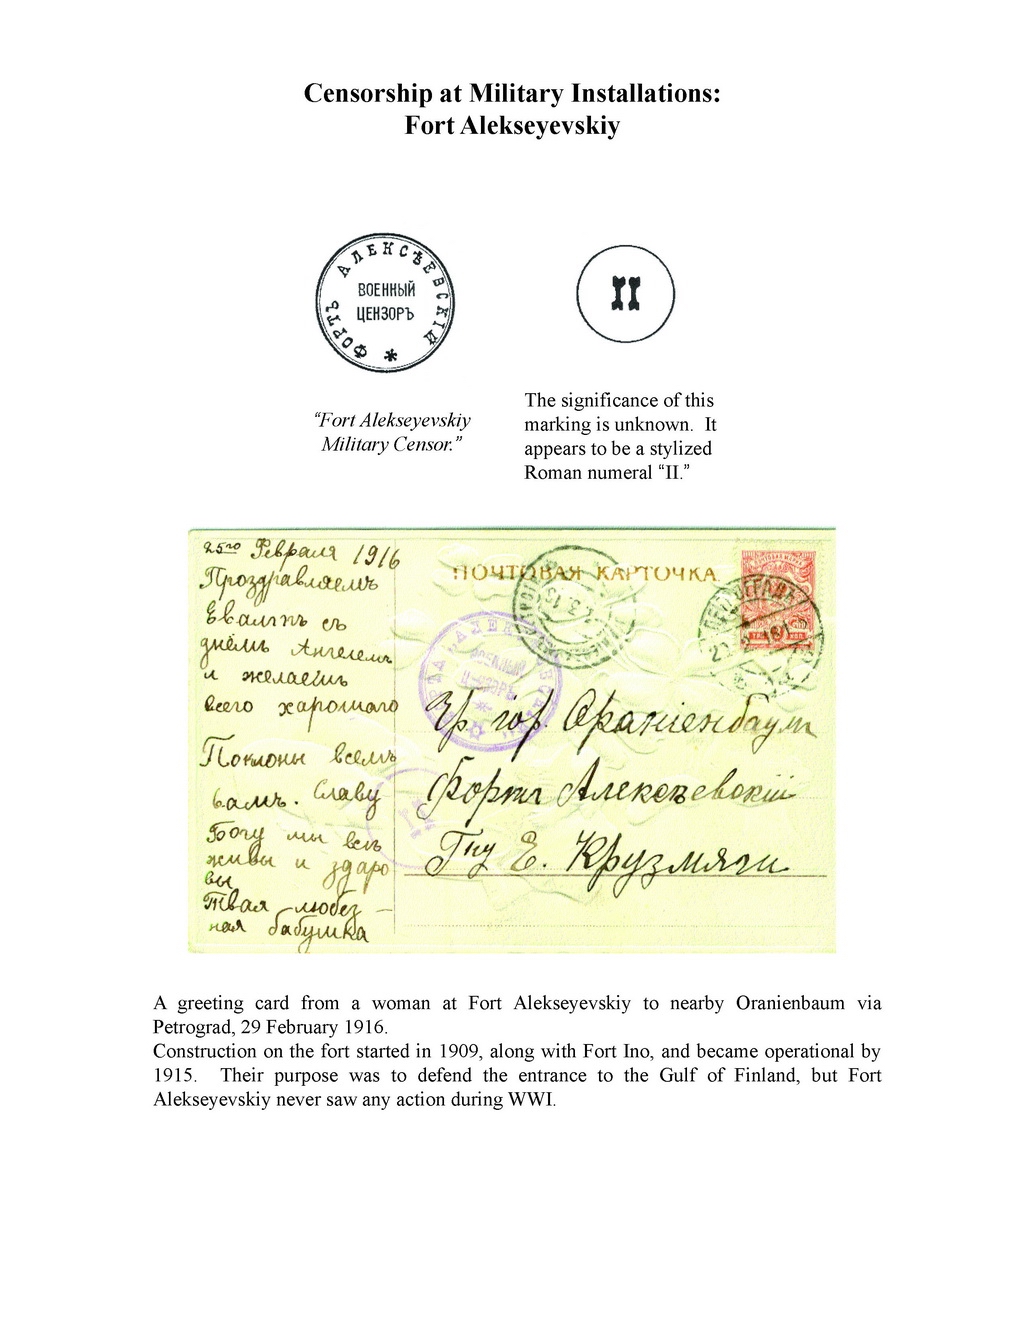 Censorship at Military Installations:
Fort Alekseyevskiy
ФОРТЪ АЛЕКСѢЕВСКІЙ *
ВОЕННЫЙ
ЦЕНЗОРЪ
II
“Fort Alekseyevskiy
Military Censor.”
The significance of this
marking is unknown. It
appears to be a stylized
Roman numeral “II.”
25го Февраля 1916
Проздравляемъ
съ
днёмъ Ангеломъ
и желаемъ
всего харошаго
Поклоны всемъ
вамъ. Славу
Богу мы всѣ
живы и здаро
вы
Твая любез-
ная бабушка
ПОЧТОВАЯ КАРТОЧКА
ПЕТРОГРАДЪ
ВОЕННЫЙ
ЦЕНЗОРЪ
гор. Ораніенбаумъ
Фортъ Алексѣевскій
Гну Е.
A greeting card from a woman at Fort Alekseyevskiy to nearby Oranienbaum via
Petrograd, 29 February 1916.
Construction on the fort started in 1909, along with Fort Ino, and became operational by
1915. Their purpose was to defend the entrance to the Gulf of Finland, but Fort
Alekseyevskiy never saw any action during WWI.